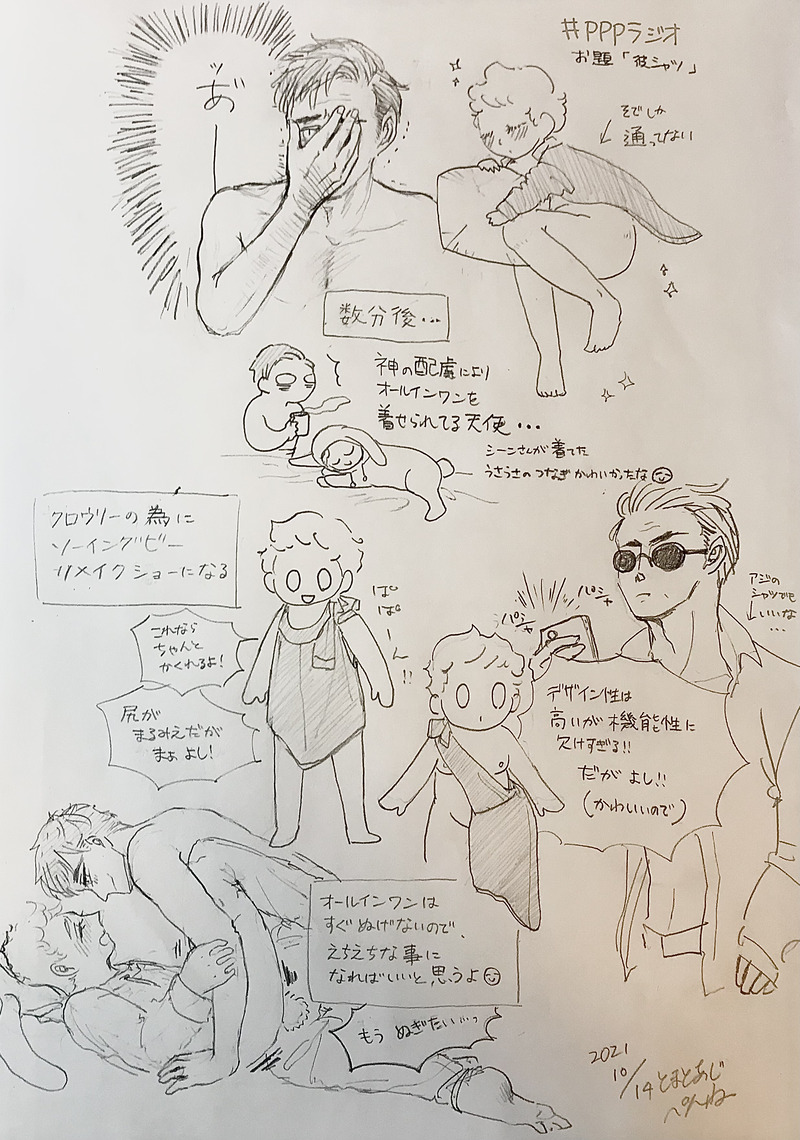 #PPPラジオ
お題「彼シャツ」
そでしか
通ってない
ッ
お
数分後…
神の配慮により
オールインワンを
着せられてる天使…
シーンさんが着てた
うさうさのつなぎかわいかったな
クロウリーの為に
ソーイングビー
リメイクショーになる
ぱ
ぱーん!!
これなら
ちゃんと
かくれるよ!
尻が
まるみえだが
まぁよし!
パシャ
パシャ
アジの
シャツでも
いいな
…
デザイン性は
高いが機能性に
欠けすぎる!!
だがよし!!
(かわいいので)
オールインワンは
すぐぬげないので、
えちえちな事に
なればいいと思うよ
もうぬぎたい…っ
2021
10/14 とまとあじ
ぺんね